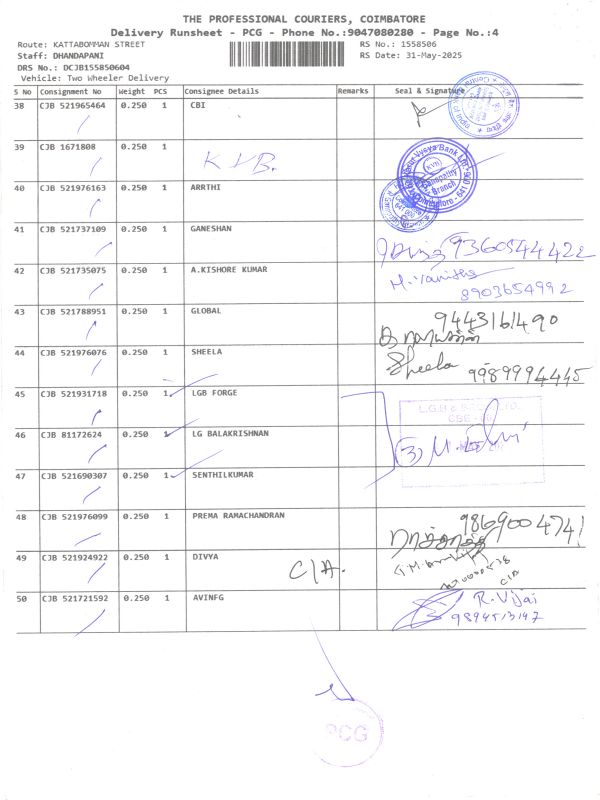 THE PROFESSIONAL COURIERS, COIMBATORE
Delivery Runsheet - PCG - Phone No.:9047080280 - Page No.:4
Route: KATTABOMMAN STREET RS No.: 1558506
Staff: DHANDAPANI RS Date: 31-May-2025
DRS No.: DCJB155850604
Vehicle: Two Wheeler Delivery
S No Consignment No Weight PCS Consignee Details Remarks Seal & Signature
38 CJB 521965464 0.250 1 CBI
39 CJB 1671808 0.250 1 KVB.
40 CJB 521976163 0.250 1 ARRTHI
41 CJB 521737109 0.250 1 GANESHAN 9360544422
42 CJB 521735075 0.250 1 A.KISHORE KUMAR
8903654992
43 CJB 521788951 0.250 1 GLOBAL 9443161490
44 CJB 521976076 0.250 1 SHEELA Sheela 9989994445
45 CJB 521931718 0.250 1 LGB FORGE
46 CJB 81172624 0.250 1 LG BALAKRISHNAN
47 CJB 521690307 0.250 1 SENTHILKUMAR
48 CJB 521976099 0.250 1 PREMA RAMACHANDRAN 9869004741
49 CJB 521924922 0.250 1 DIVYA C/A.
C/A
50 CJB 521721592 0.250 1 AVINFG R.Vijai
9894513147
PCG